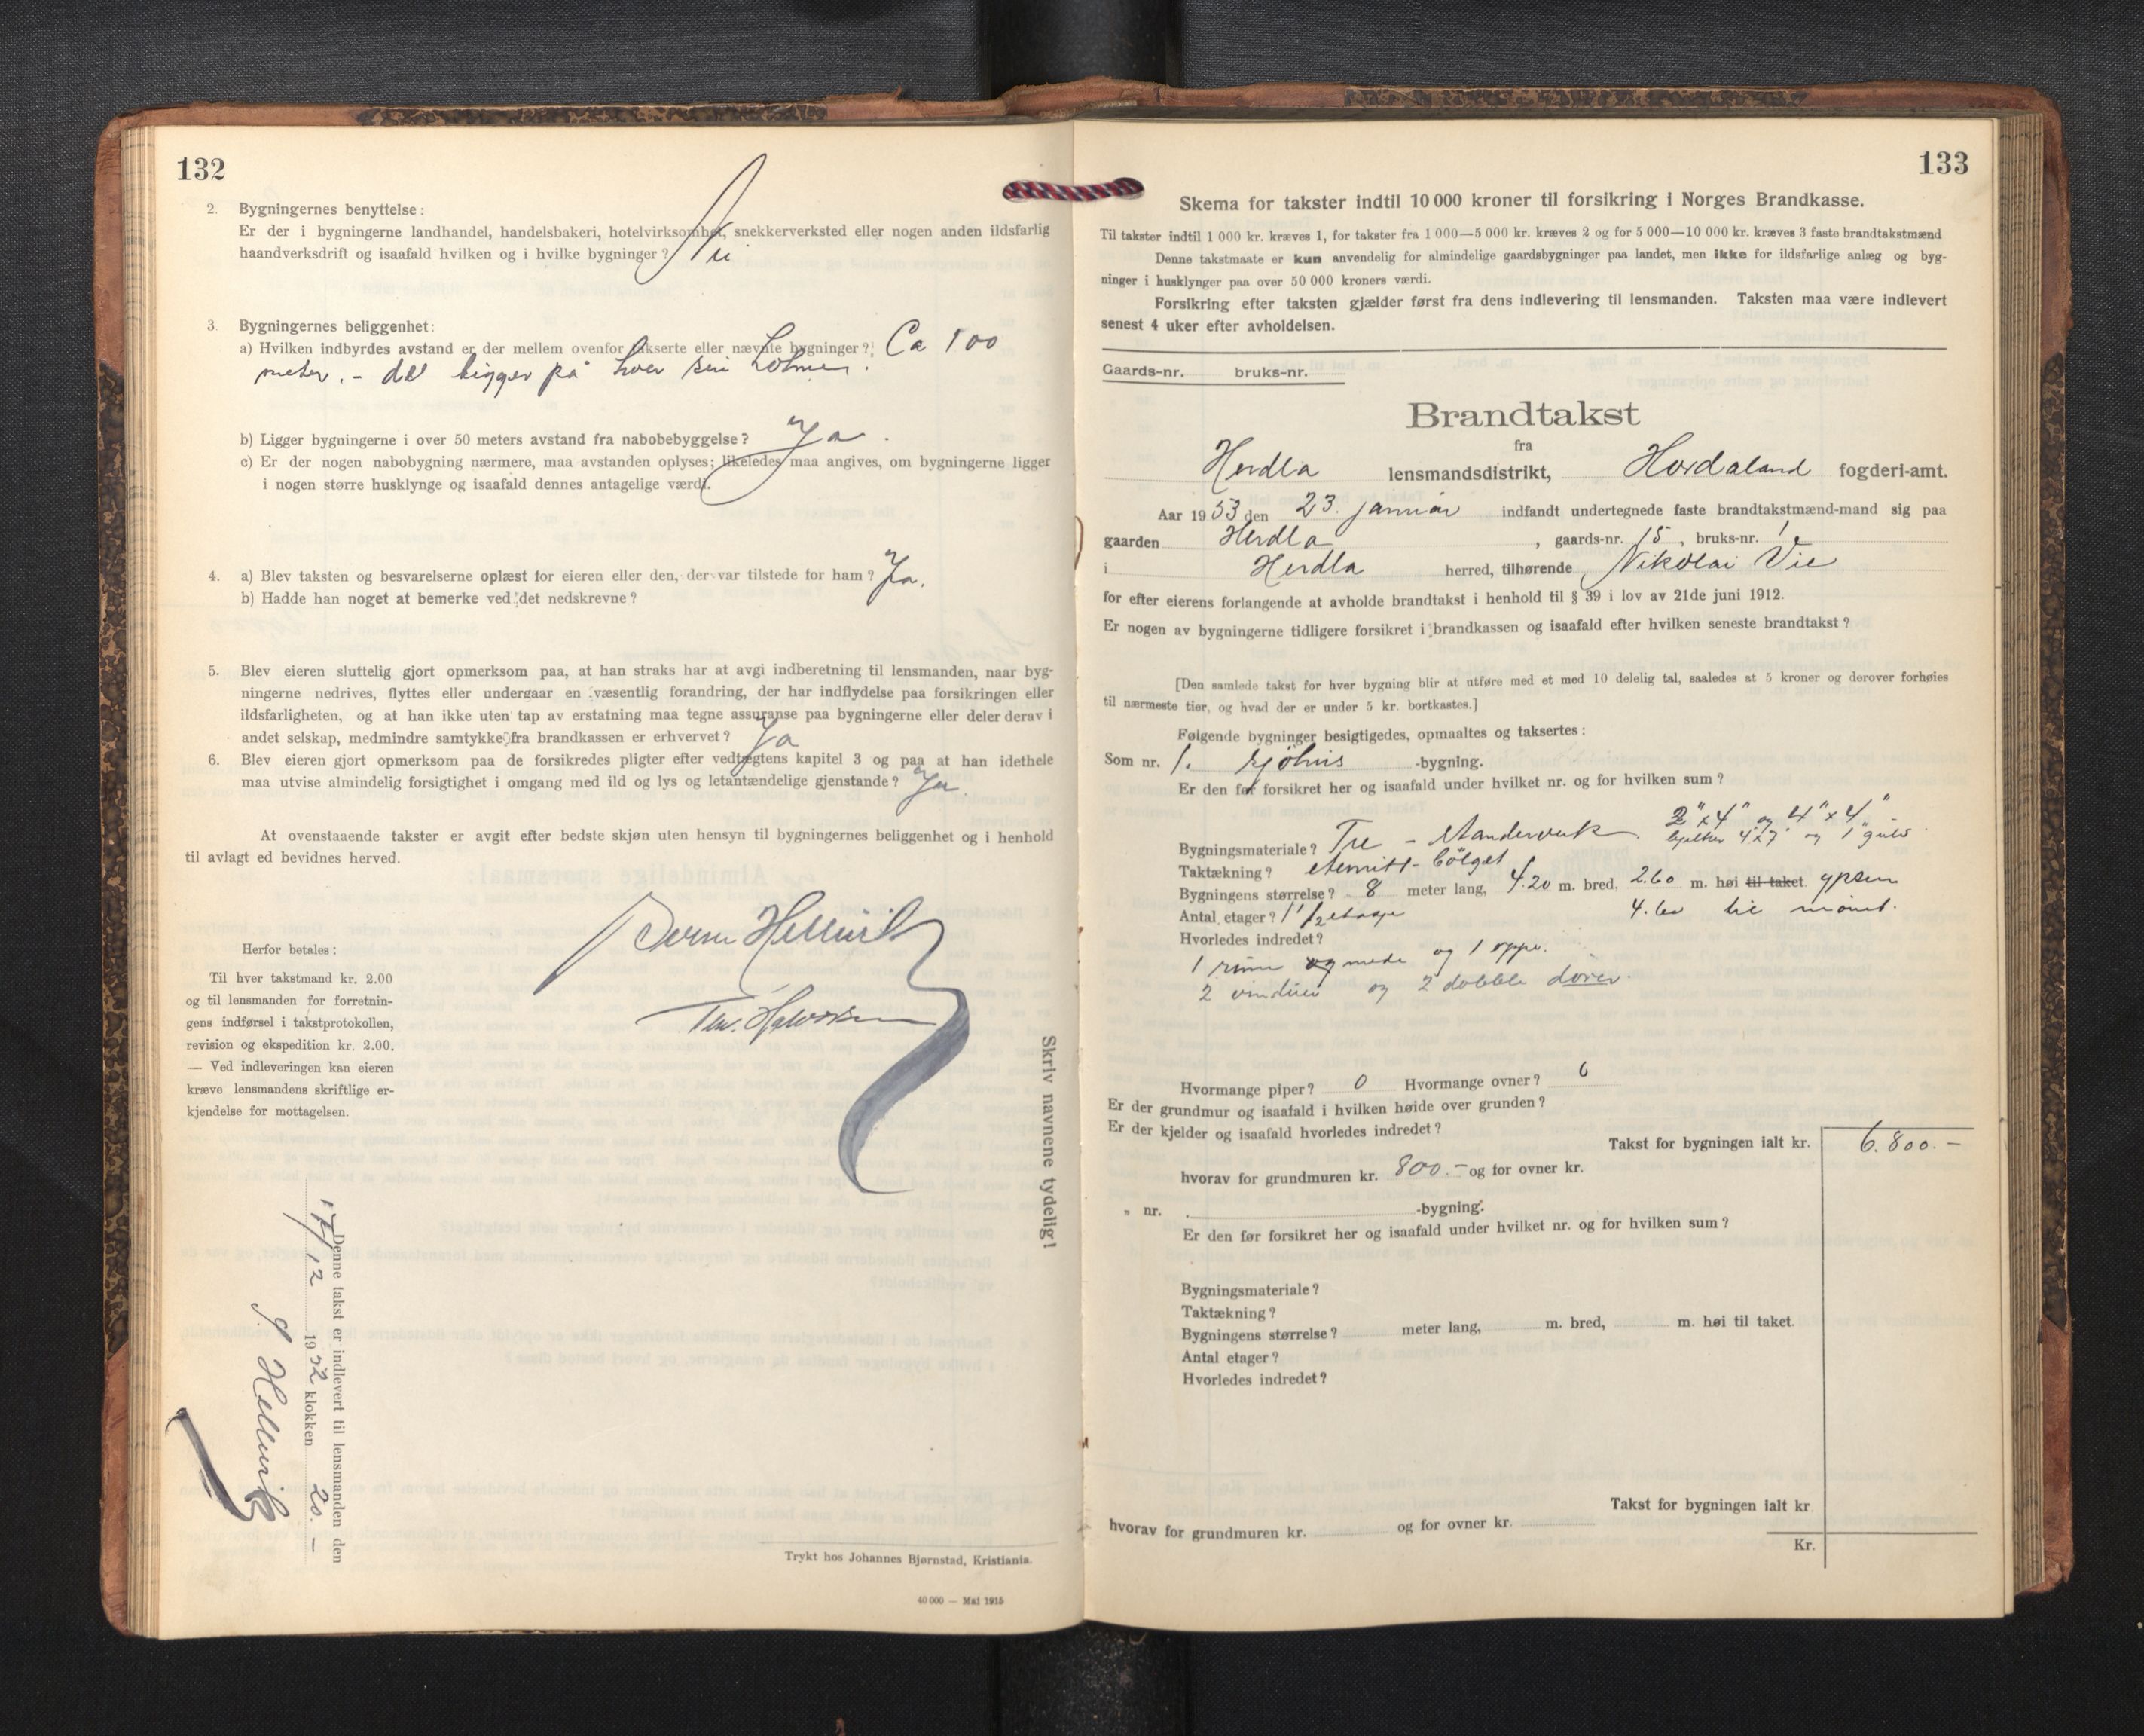 132
2. Bygningernes benyttelse:
Er der i bygningerne landhandel, handelsbakeri, hotelvirksomhet, snekkerverksted eller nogen anden ildsfarlig
haandverksdrift og isaafald hvilken og i hvilke bygninger? Nei
3. Bygningernes beliggenhet:
a) Hvilken indbyrdes avstand er der mellem ovenfor takserte eller nævnte bygninger? Ca 100
meter. - ligger på hver sin holme.
b) Ligger bygningerne i over 50 meters avstand fra nabobebyggelse? Ja.
c) Er der nogen nabobygning nærmere, maa avstanden oplyses; likeledes maa angives, om bygningerne ligger
i nogen større husklynge og isaafald dennes antagelige værdi.
4. a) Blev taksten og besvarelserne oplæst for eieren eller den, der var tilstede for ham? Ja.
b) Hadde han noget at bemerke ved det nedskrevne?
5. Blev eieren sluttelig gjort opmerksom paa, at han straks har at avgi indberetning til lensmanden, naar byg-
ningerne nedrives, flyttes eller undergaar en væsentlig forandring, der har indflydelse paa forsikringen eller
ildsfarligheten, og at han ikke uten tap av erstatning maa tegne assuranse paa bygningerne eller deler derav i
andet selskap, medmindre samtykke fra brandkassen er erhvervet? Ja
6. Blev eieren gjort opmerksom paa de forsikredes pligter efter vedtægtens kapitel 3 og paa at han idethele
maa utvise almindelig forsigtighet i omgang med ild og lys og letantændelige gjenstande? Ja
At ovenstaaende takster er avgit efter bedste skjøn uten hensyn til bygningernes beliggenhet og i henhold
til avlagt ed bevidnes herved.
Herfor betales:
Til hver takstmand kr. 2.00
og til lensmanden for forretnin-
gens indførsel i takstprotokollen,
revision og ekspedition kr. 2.00.
— Ved indleveringen kan eieren
kræve lensmandens skriftlige er-
kjendelse for mottagelsen.
Hellevik
Halvorsen
Skriv navnene tydelig!
Denne takst er indlevert til lensmanden den
17/12 1952 klokken 20.-
Hellevik
Trykt hos Johannes Bjørnstad, Kristiania.
40 000 — Mai 1915
133
Skema for takster indtil 10 000 kroner til forsikring i Norges Brandkasse.
Til takster indtil 1 000 kr. kræves 1, for takster fra 1 000—5 000 kr. kræves 2 og for 5 000—10 000 kr. kræves 3 faste brandtakstmænd
Denne takstmaate er kun anvendelig for almindelige gaardsbygninger paa landet, men ikke for ildsfarlige anlæg og byg-
ninger i husklynger paa over 50 000 kroners værdi.
Forsikring efter taksten gjælder først fra dens indlevering til lensmanden. Taksten maa være indlevert
senest 4 uker efter avholdelsen.
Gaards-nr. bruks-nr.
Brandtakst
fra
Herdla lensmandsdistrikt, Hordaland fogderi-amt.
Aar 1953 den 23. januar indfandt undertegnede faste brandtakstmænd-mand sig paa
gaarden Herdla, gaards-nr. 15, bruks-nr. 1
i Herdla herred, tilhørende Nikolai Vie
for efter eierens forlangende at avholde brandtakst i henhold til § 39 i lov av 21de juni 1912.
Er nogen av bygningerne tidligere forsikret i brandkassen og isaafald efter hvilken seneste brandtakst?
[Den samlede takst for hver bygning blir at utføre med et med 10 delelig tal, saaledes at 5 kroner og derover forhøies
til nærmeste tier, og hvad der er under 5 kr. bortkastes.]
Følgende bygninger besigtigedes, opmaaltes og taksertes:
Som nr. 1. sjøhus -bygning.
Er den før forsikret her og isaafald under hvilket nr. og for hvilken sum?
2"x4" og 4"x4"
Bygningsmateriale? Tre - standerverk. bjelker 4x7" og 1" gulv.
Taktækning? eternitt-bölget
Bygningens størrelse? 8 meter lang, 4.20 m. bred, 2.60 m. høi til taket
Antal etager? 1 1/2 etasje til mønet.
Hvorledes indredet?
1 rum nede og 1 oppe.
2 vinduer og 2 doble dører.
Hvormange piper? 0 Hvormange ovner? 0
Er der grundmur og isaafald i hvilken høide over grunden?
Er der kjelder og isaafald hvorledes indredet?
Takst for bygningen ialt kr. 6.800.-
hvorav for grundmuren kr. 800.- og for ovner kr.
" nr. -bygning.
Er den før forsikret her og isaafald under hvilket nr. og for hvilken sum?
Bygningsmateriale?
Taktækning?
Bygningens størrelse? meter lang, m. bred, m. høi til taket.
Antal etager?
Hvorledes indredet?
Takst for bygningen ialt kr.
hvorav for grundmuren kr. og for ovner kr.
Kr.